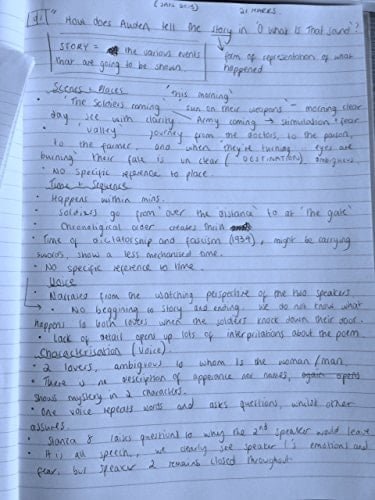 (Jan 2013)
21 MARKS.
How does Auden tell the story in 'O What Is That Sound'?
STORY = the various events
that are going to be shown.
form of representation of what
happened
Scenes + Places
"this morning"
'The Soldiers coming' 'sun on their weapons' - morning clear
day see with clarity Army coming → stimulation + fear
'valley' journey from the doctors, to the parson,
to the farmer, and when 'they're turning' eyes are
burning' their fate is un clear (DESTINATION), ambiguous
• No specific reference to place.
Time + Sequence
• Happens within mins.
• Soldiers go from 'over the distance' to at 'the gate'
• Chronological order creates thrill
• Time of dictatorship and fascism (1934), might be carrying
swords, show a less mechanised time.
• No specific reference to time.
Voice
• Narrated from the watching perspective of the two speakers
• No beggining to story and ending. we do not know what
happens to both lovers when the soldiers knock down their door.
• Lack of detail opens up lots of interpritations about the poem
Characterisation (Voice).
• 2 lovers, ambiguous to whom is the woman/man.
• There is no description of apperance nor names,
shows mystery in 2 characters.
• One voice repeats words and asks questions, whilst other
assures.
• Stanza 8 raises questions to why the 2nd speaker would leave
• It is all speech, we clearly see speaker 1's emotions and
fear, but speaker 2 remains closed throughout.